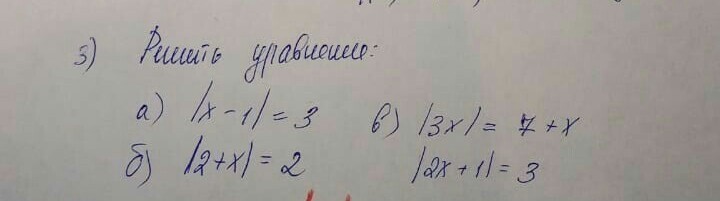 3) Решить уравнение:
а) |x-1| = 3 в) |3x| = 7 + x
б) |2+x| = 2 |2x+1| = 3